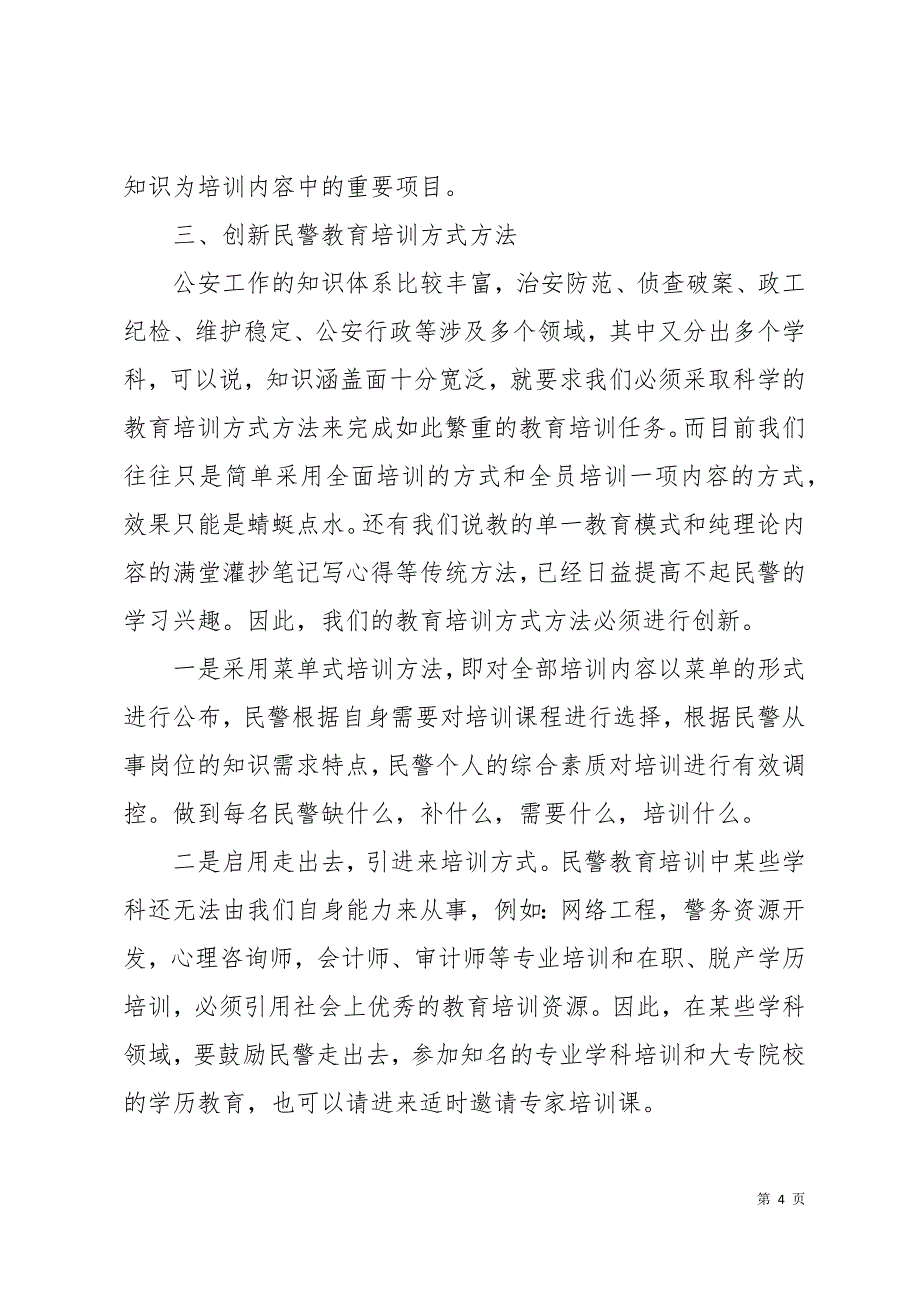 知识为培训内容中的重要项目。
三、创新民警教育培训方式方法
公安工作的知识体系比较丰富，治安防范、侦查破案、政工
纪检、维护稳定、公安行政等涉及多个领域，其中又分出多个学
科，可以说，知识涵盖面十分宽泛，就要求我们必须采取科学的
教育培训方式方法来完成如此繁重的教育培训任务。而目前我们
往往只是简单采用全面培训的方式和全员培训一项内容的方式，
效果只能是蜻蜓点水。还有我们说教的单一教育模式和纯理论内
容的满堂灌抄笔记写心得等传统方法，已经日益提高不起民警的
学习兴趣。因此，我们的教育培训方式方法必须进行创新。
一是采用菜单式培训方法，即对全部培训内容以菜单的形式
进行公布，民警根据自身需要对培训课程进行选择，根据民警从
事岗位的知识需求特点，民警个人的综合素质对培训进行有效调
控。做到每名民警缺什么，补什么，需要什么，培训什么。
二是启用走出去，引进来培训方式。民警教育培训中某些学
科还无法由我们自身能力来从事，例如：网络工程，警务资源开
发，心理咨询师，会计师、审计师等专业培训和在职、脱产学历
培训，必须引用社会上优秀的教育培训资源。因此，在某些学科
领域，要鼓励民警走出去，参加知名的专业学科培训和大专院校
的学历教育，也可以请进来适时邀请专家培训课。
第 4 页